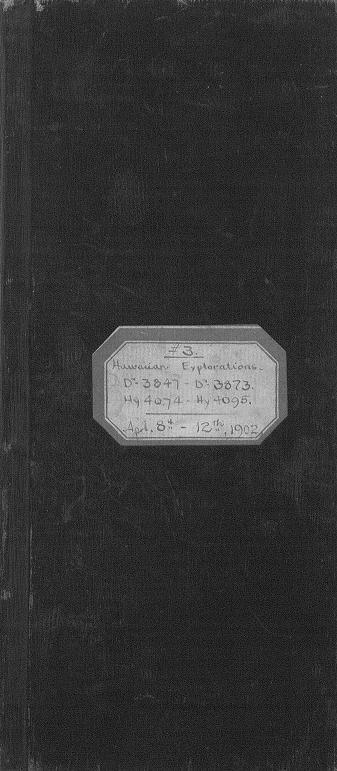 #3.
Hawaiian Explorations.
Dr. 3847 - Dr. 3873.
Hy 4074 - Hy 4095.
Apl. 8th - 12th, 1902